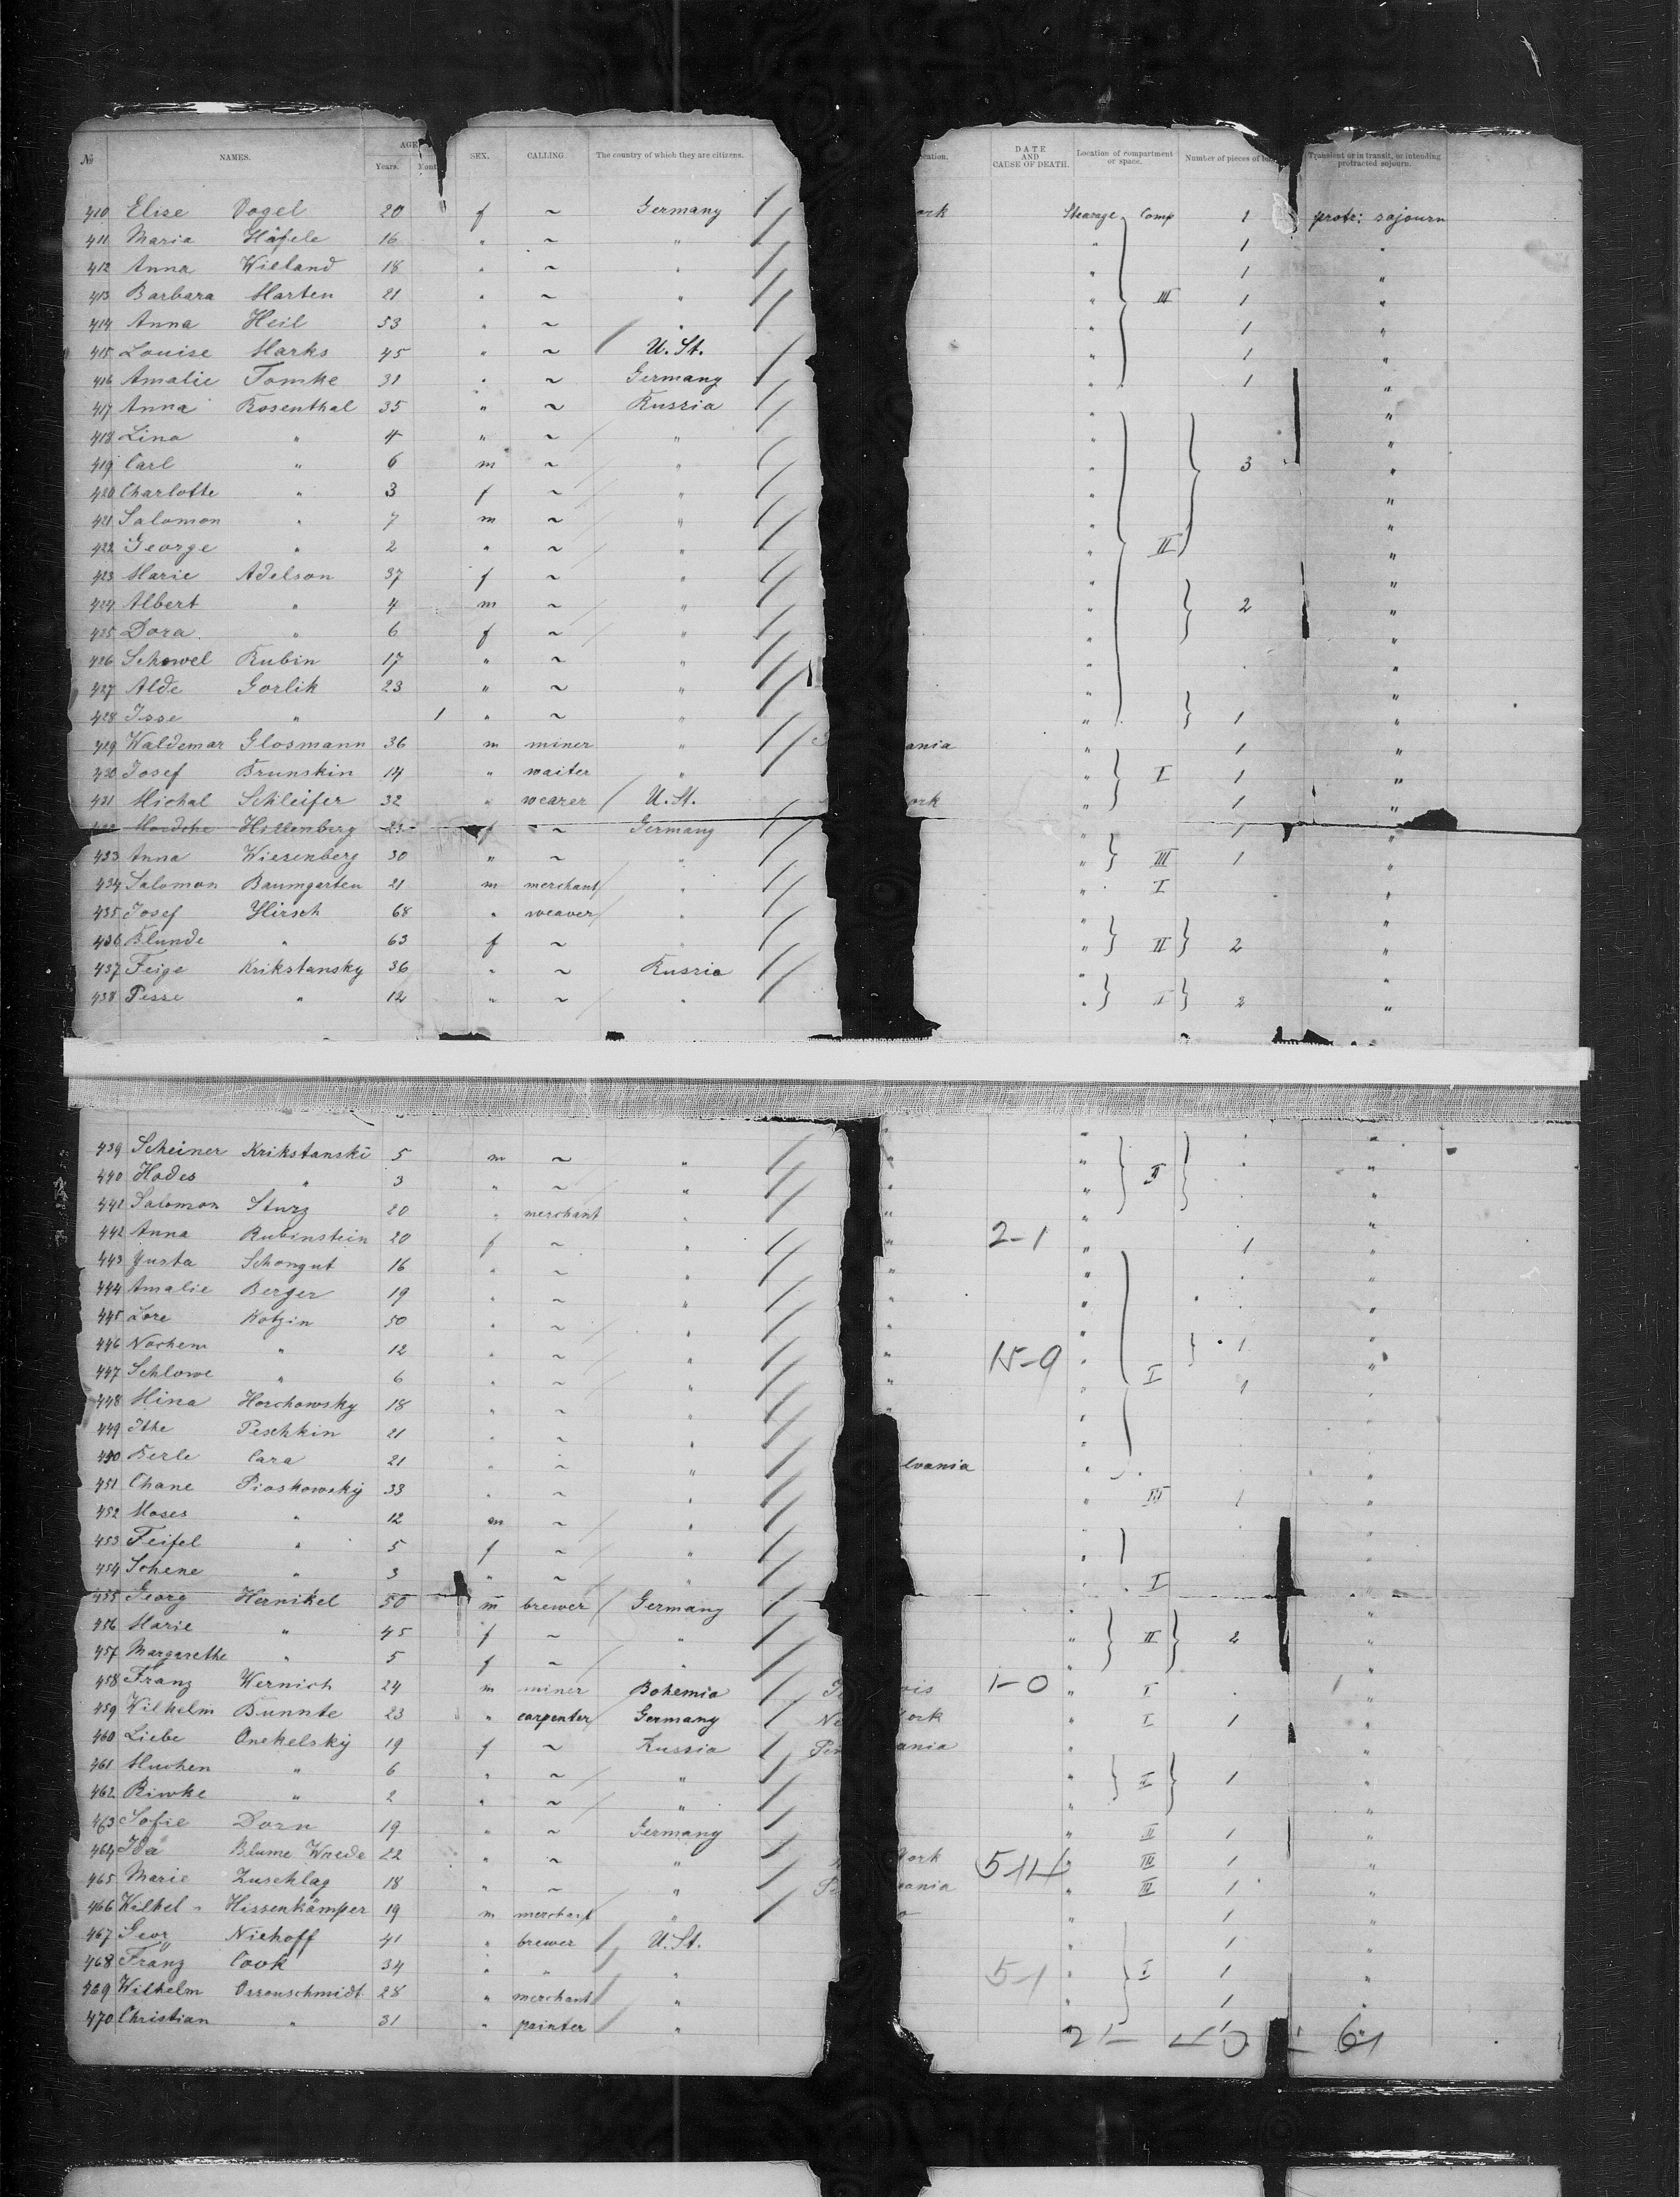 № NAMES. AGE Years. Mont SEX. CALLING The country of which they are citizens. cation. DATE AND CAUSE OF DEATH. Location of compartment or space. Number of pieces of Transient or in transit, or intending protracted sojourn.
410 Elise Vogel 20 f ~ Germany ork Steerage Comp 1 protr: sojourn
411 Maria Häfele 16 " ~ " " 1 "
412 Anna Wieland 18 " ~ " " 1 "
413 Barbara Marten 21 " ~ " " III 1 "
414 Anna Heil 53 " ~ " " 1 "
415 Louise Marks 45 " ~ U. St. " 1 "
416 Amalie Tomke 31 " ~ Germany " 1 "
417 Anna Rosenthal 35 " ~ Russia " "
418 Lina " 4 " ~ " " "
419 Carl " 6 m ~ " " 3 "
420 Charlotte " 3 f ~ " " "
421 Salomon " 7 m ~ " " "
422 George " 2 " ~ " " II "
423 Marie Adelson 37 f ~ " " "
424 Albert " 4 m ~ " " 2 "
425 Dora " 6 f ~ " " "
426 Schowel Rubin 17 " ~ " " "
427 Alde Gorlik 23 " ~ " " "
428 Isse " 1 " ~ " " 1 "
429 Waldemar Glosmann 36 m miner " ania " 1 "
430 Josef Brunskin 14 " waiter " " I 1 "
431 Michal Schleifer 32 " wearer U. St. ork " 1 "
Hillenberg 23 f ~ Germany " 1 "
433 Anna Wiesenberg 30 " ~ " " III 1 "
434 Salomon Baumgarten 21 m merchant " " I "
435 Josef Hirsch 68 " weaver " " "
436 Blunde " 63 f ~ " " II 2 "
437 Feige Krikstansky 36 " ~ Russia " "
438 Pesse " 12 " ~ " " I 2 "
439 Scheiner Krikstanski 5 m ~ " " "
440 Hodes " 3 " ~ " " II "
442 Salomon Sturz 20 " merchant " " "
442 Anna Rubinstein 20 f ~ " 2-1 " 1 "
443 Justa Schongut 16 " ~ " " "
444 Amalie Berger 19 " ~ " " "
445 Lore Kotzin 50 " ~ " " "
446 Nochem " 12 " ~ " 15-9 " 1 "
447 Schlowe " 6 " ~ " " I 1 "
448 Mina Horchowsky 18 " ~ " " "
449 Ithe Peschkin 21 " ~ " " "
450 Berle Cara 21 " ~ " lvania " "
451 Chane Pioskowsky 33 " ~ " " III 1 "
452 Moses " 12 m ~ " "
453 Feifel " 5 f ~ " " "
454 Schene " 3 " ~ " " I "
455 Georg Hernikel 50 m brewer Germany " "
456 Marie " 45 f ~ " " II 2 "
457 Margarethe " 5 f ~ " " "
458 Franz Wernich 24 m miner Bohemia ois 1-0 " I "
459 Wilhelm Bunnte 23 " carpenter Germany Ne ork " I 1 "
460 Liebe Onekelsky 19 f ~ Russia Pen ania " "
461 Muchen " 6 " ~ " " I 1 "
462 Riwke " 2 " ~ " " "
463 Sofie Dorn 19 " ~ Germany " II 1 "
464 Ida Blume Wrede 22 " ~ " York 5-14 " III 1 "
465 Marie Zuschlag 18 " ~ " P vania " III 1 "
466 Wilhel Hissenkämper 19 m merchant " " 1 "
467 Georg Niehoff 41 " brewer U. St. " 1 "
468 Franz Cook 34 " " " 5-1 " I 1 "
469 Wilhelm Ossenschmidt 28 " merchant " " 1 "
470 Christian " 31 " painter " "
61